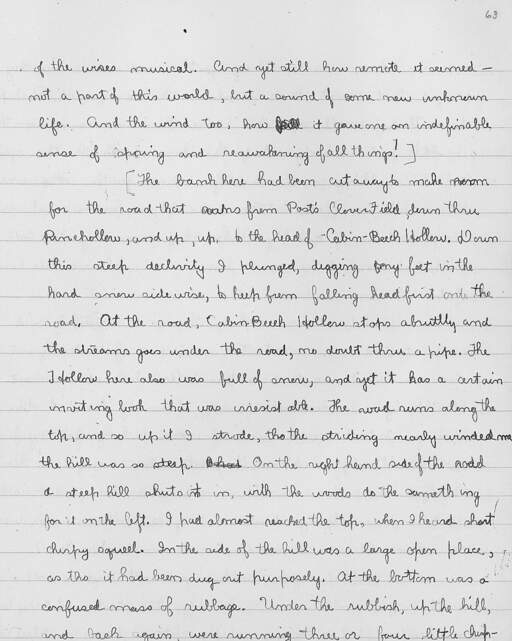 63
of the wires musical. And yet still how remote it seemed —
not a part of this world, but a sound of some new unknown
life. And the wind too, how it gave one an indefinable
sense of spring and reawakening of all things!]
[The bank here had been cut away to make room
for the road that runs from Post's Clover Field, down thru
Pinehollow, and up, up, to the head of Cabin-Beech Hollow. Down
this steep declivity I plunged, digging my feet in the
hard snow sidewise, to keep from falling headfirst onto the
road. At the road, Cabin Beech Hollow stops abruttly and
the streams goes under the road, no doubt thru a pipe. The
Hollow here also was full of snow, and yet it has a certain
inviting look that was irresistable. The road runs along the
top, and so up it I strode, tho the striding nearly winded me
the hill was so steep. On the right hand side of the road
a steep hill shuts it in, with the woods do the same thing
for it on the left. I had almost reached the top, when I heard short
chirpy squeel. In the side of the hill was a large open place,
as tho it had been dug out purposely. At the bottom was a
confused mass of rubbage. Under the rubbish, up the hill,
and back again, were running three or four little chip-